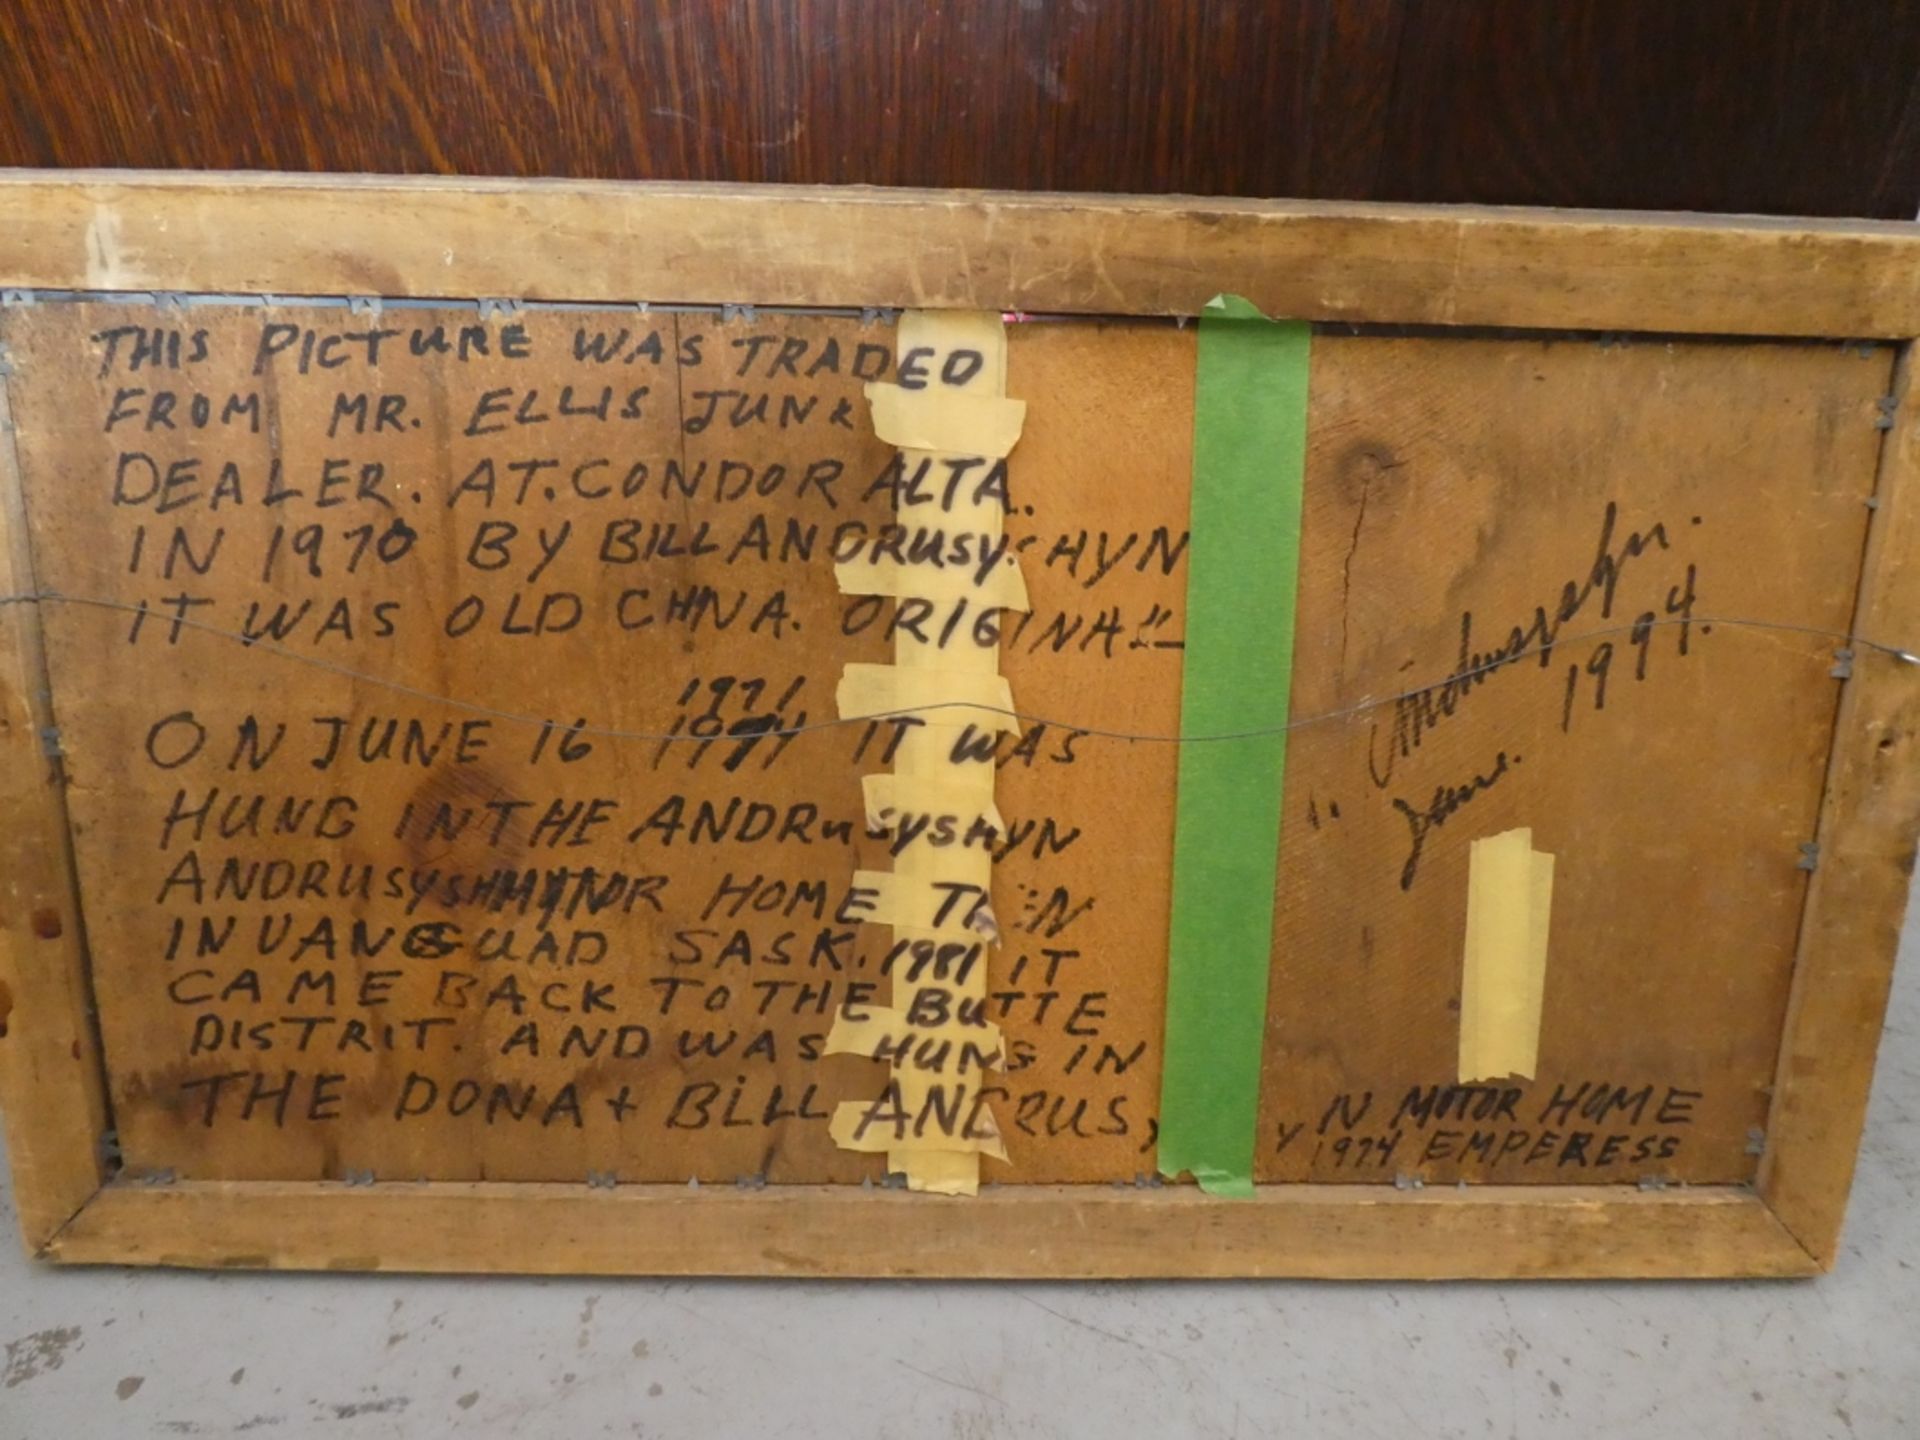 THIS PICTURE WAS TRADED
FROM MR. ELLIS JUNK
DEALER. AT. CONDOR ALTA.
IN 1970 BY BILL ANDRUSYSHYN
IT WAS OLD CHINA. ORIGINAL
1971
ON JUNE 16 IT WAS
HUNG IN THE ANDRUSYSHYN
HOME THEN
IN VANGUAD SASK. 1981 IT
CAME BACK TO THE BUTTE
DISTRIT. AND WAS HUNG IN
THE DONA + BILL ANDRUSY YN MOTOR HOME
1974 EMPERESS
June. 1994.